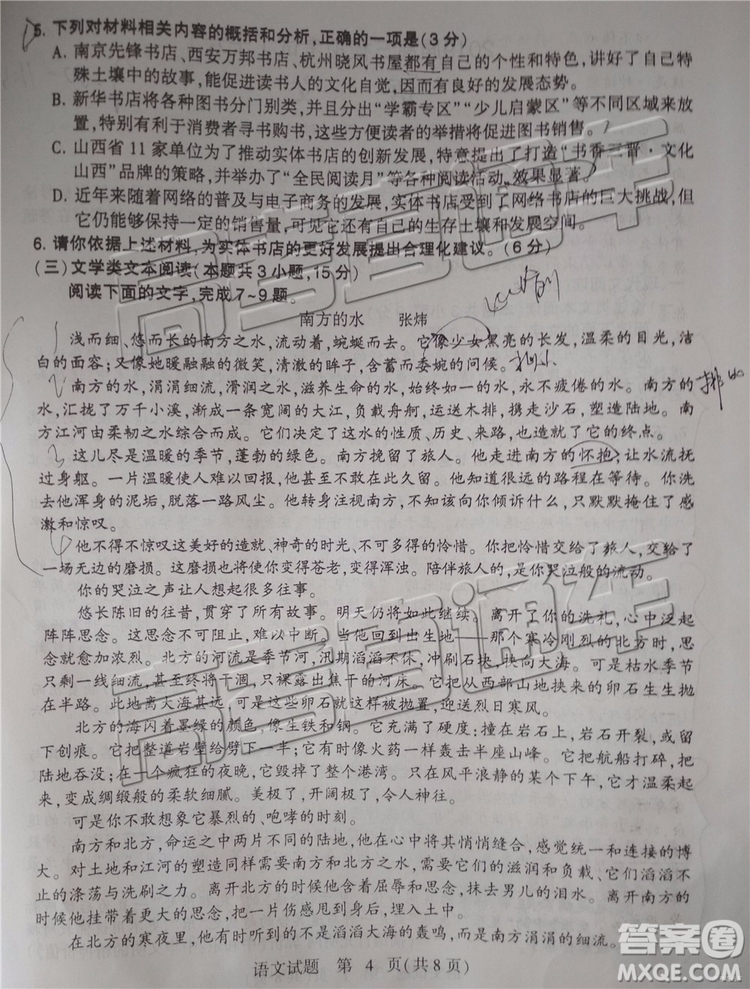 5. 下列对材料相关内容的概括和分析,正确的一项是(3分)
A. 南京先锋书店、西安万邦书店、杭州晓风书屋都有自己的个性和特色,讲好了自己特
殊土壤中的故事,能促进读书人的文化自觉,因而有良好的发展态势。
B. 新华书店将各种图书分门别类,并且以“学霸专区”“少儿启蒙区”等不同区域来放
置,特别有利于消费者寻书购书,这些方便读者的举措将促进图书销售。
C. 山西省11家单位为了推动实体书店的创新发展,特意提出了打造“书香三晋·文化
山西”品牌的策略,并举办了“全民阅读月”等各种阅读活动,效果显著。
D. 近年来随着网络的普及与电子商务的发展,实体书店受到了网络书店的巨大挑战,但
它仍能够保持一定的销售量,可见它还有自己的生存土壤和发展空间。
6. 请你依据上述材料,为实体书店的更好发展提出合理化建议。(6分)
(三)文学类文本阅读(本题共3小题,15分)
阅读下面的文字,完成7~9题。
南方的水 张炜
浅而细、悠而长的南方之水,流动着,蜿蜒而去。它像少女黑亮的长发,温柔的目光,洁
白的面容;又像她暖融融的微笑,清澈的眸子,含蓄而委婉的问候。
南方的水,涓涓细流,滑润之水,滋养生命的水,始终如一的水,永不疲倦的水。南方的
水,汇拢了万千小溪,渐成一条宽阔的大江,负载舟舸,运送木排,携走沙石,塑造陆地。南
方江河由柔韧之水综合而成。它们决定了这水的性质、历史、来路,也造就了它的终点。
这儿尽是温暖的季节,蓬勃的绿色。南方挽留了旅人。他走进南方的怀抱,让水流抚
过身躯。一片温暖使人难以回报,他甚至不敢在此久留。他知道很远的路程在等待。你洗
去他浑身的泥垢,脱落一路风尘。他转身注视南方,不知何以向你倾诉什么,只默默掩住了感
激和惊叹。
他不得不惊叹这美好的造就、神奇的时光、不可多得的怜惜。你把怜惜交给了旅人,交给了
一场无边的磨损。这磨损将使你变得苍老,变得浑浊。陪伴旅人的,是你哭泣般的流动。
你的哭泣之声让人想起很多往事。
悠长陈旧的往昔,贯穿了所有日子。明天仍将如此继续。离开了你的洗礼,心中泛起
阵阵思念。这思念不可阻止,难以中断。当他回到出生地——那个寒冷刚烈的北方时,思
念就愈加浓烈。北方的河流是季节河,汛期滔滔不休,冲刷石块,扶向大海。可是枯水季节
只剩一线细流,甚至终将干涸,只裸露出焦干的河床。它把从西部山地扶来的卵石生生抛
在半路。此地离大海甚远,可是这些卵石就这样被抛置,迎送烈日寒风。
北方的海闪着墨绿的颜色,像生铁和钢。它充满了硬度:撞在岩石上,岩石开裂,留
下创痕。它把整道岩壁给劈下一半;它有时像火药一样轰去半座山峰。它把航船打碎,把
陆地吞没;在一个疯狂的夜晚,它会摧毁了整个港湾。只有在风平浪静的某个下午,它才温柔起
来,变成绸缎般的柔软细腻。美极了,开阔极了,令人神往。
可是你不愿想象它暴烈的、咆哮的时刻。
南方和北方,命运之中两片不同的陆地,他从心中将其悄悄缝合,感觉统一和连接的博
大。对土地和江河的塑造同样需要南方和北方之水,需要它们的滋润和负载、它们滔滔不
止的涤荡与洗刷之力。离开北方的时候他含着屈辱和思念,抹去男儿的泪水。离开南方的时
候他挂带着更大的思念,把一片伤感甩到来路,埋入土中。
在北方的寒夜里,他有时听到的不是滔滔大海的轰鸣,而是南方涓涓的细流。
语文试题 第 4 页(共8页)
答案圈
MXQE.COM